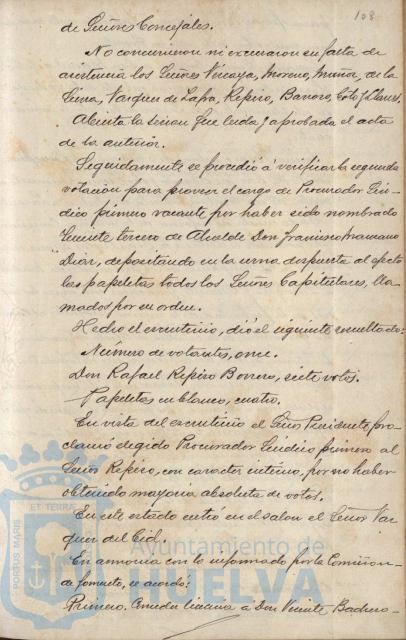 108
de Señores Concejales.
No concurrieron ni excusaron su falta de
asistencia los Señores Vizcaya, Moreno, Muñoz, de la
Cinta, Vazquez de Zafra, Repiso, Barroso, Coto y Llanes.
Abierta la sesion fue leida y aprobada el acta
de la anterior.
Seguidamente se procedió á verificar la segunda
votacion para proveer el cargo de Procurador Sín-
dico primero vacante por haber sido nombrado
Teniente tercero de Alcalde Don Francisco
Diaz, depositando en la urna dispuesta al efecto
las papeletas todos los Señores Capitulares, lla-
mados por su orden.
Hecho el escrutinio, dió el siguiente resultado:
Número de votantes, once.
Don Rafael Repiso Borrero, siete votos.
Papeletas en blanco, cuatro.
En vista del escrutinio el Señor Presidente, pro-
clamó elegido Procurador Síndico primero al
Señor Repiso, con caracter interino, por no haber
obtenido mayoria absoluta de votos.
En este estado entró en el salon el Señor Vaz-
quez del Cid.
En armonia con lo informado por la Comision
de fomento, se acordó:
Primero. Conceder licencia a Don Vicente
PORTUS MARIS
ET TERRAE
Ayuntamiento de
HUELVA